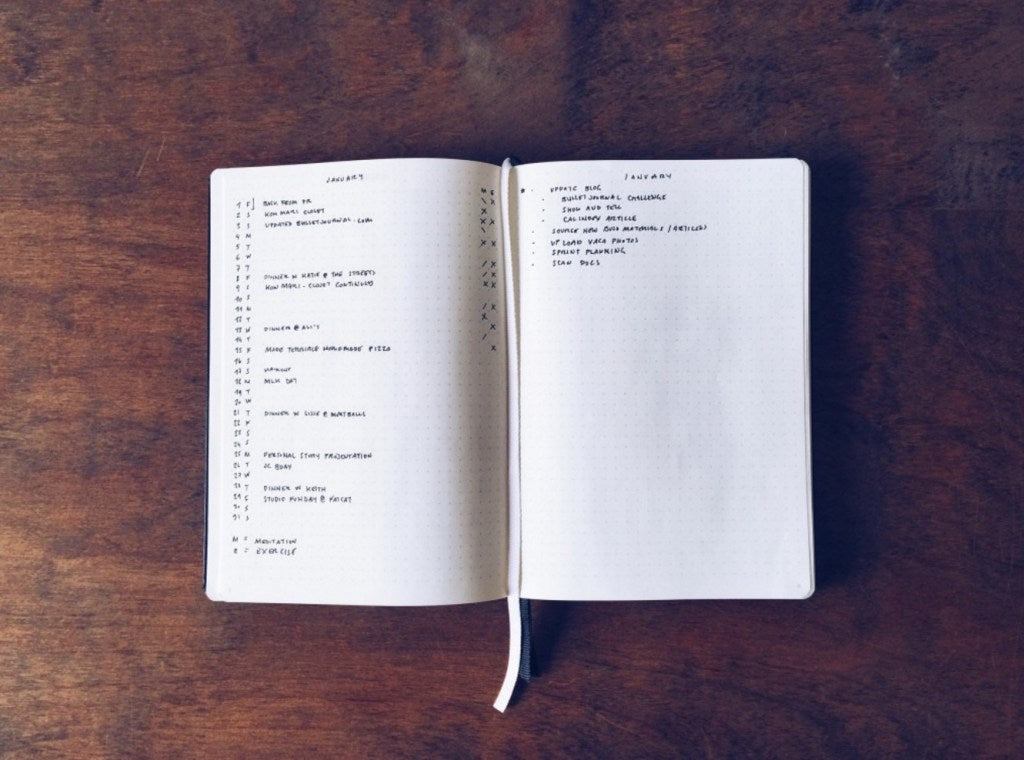 JANUARY
M E
1 F BACK FROM PR
2 S KON MARI CLOSET
3 S UPDATED BULLETJOURNAL.COM
4 M
5 T
6 W
7 T
8 F DINNER W KATIE @ THE STREETS
9 S KON MARI - CLOSET CONTINUED
10 S
11 M
12 T
13 W DINNER @ ALI'S
14 T
15 F MADE TERRIBLE HOMEMADE PIZZA
16 S
17 S
18 M MLK DAY
19 T
20 W
21 T DINNER W @ MEATBALLS
22 F
23 S
24 S
25 M PERSONAL STORY PRESENTATION
26 T JC BDAY
27 W
28 T DINNER W KEITH
29 STUDIO FUNDAY @
30 S
31 S
M = MEDITATION
E = EXERCISE
JANUARY
* • UPDATE BLOG
• BULLETJOURNAL CHALLENGE
• SHOW AND TELL
• CALENDEX ARTICLE
• SOURCE NEW BUJO MATERIALS / ARTICLES
• UPLOAD VACA PHOTOS
• SPRINT PLANNING
• SCAN DOCS